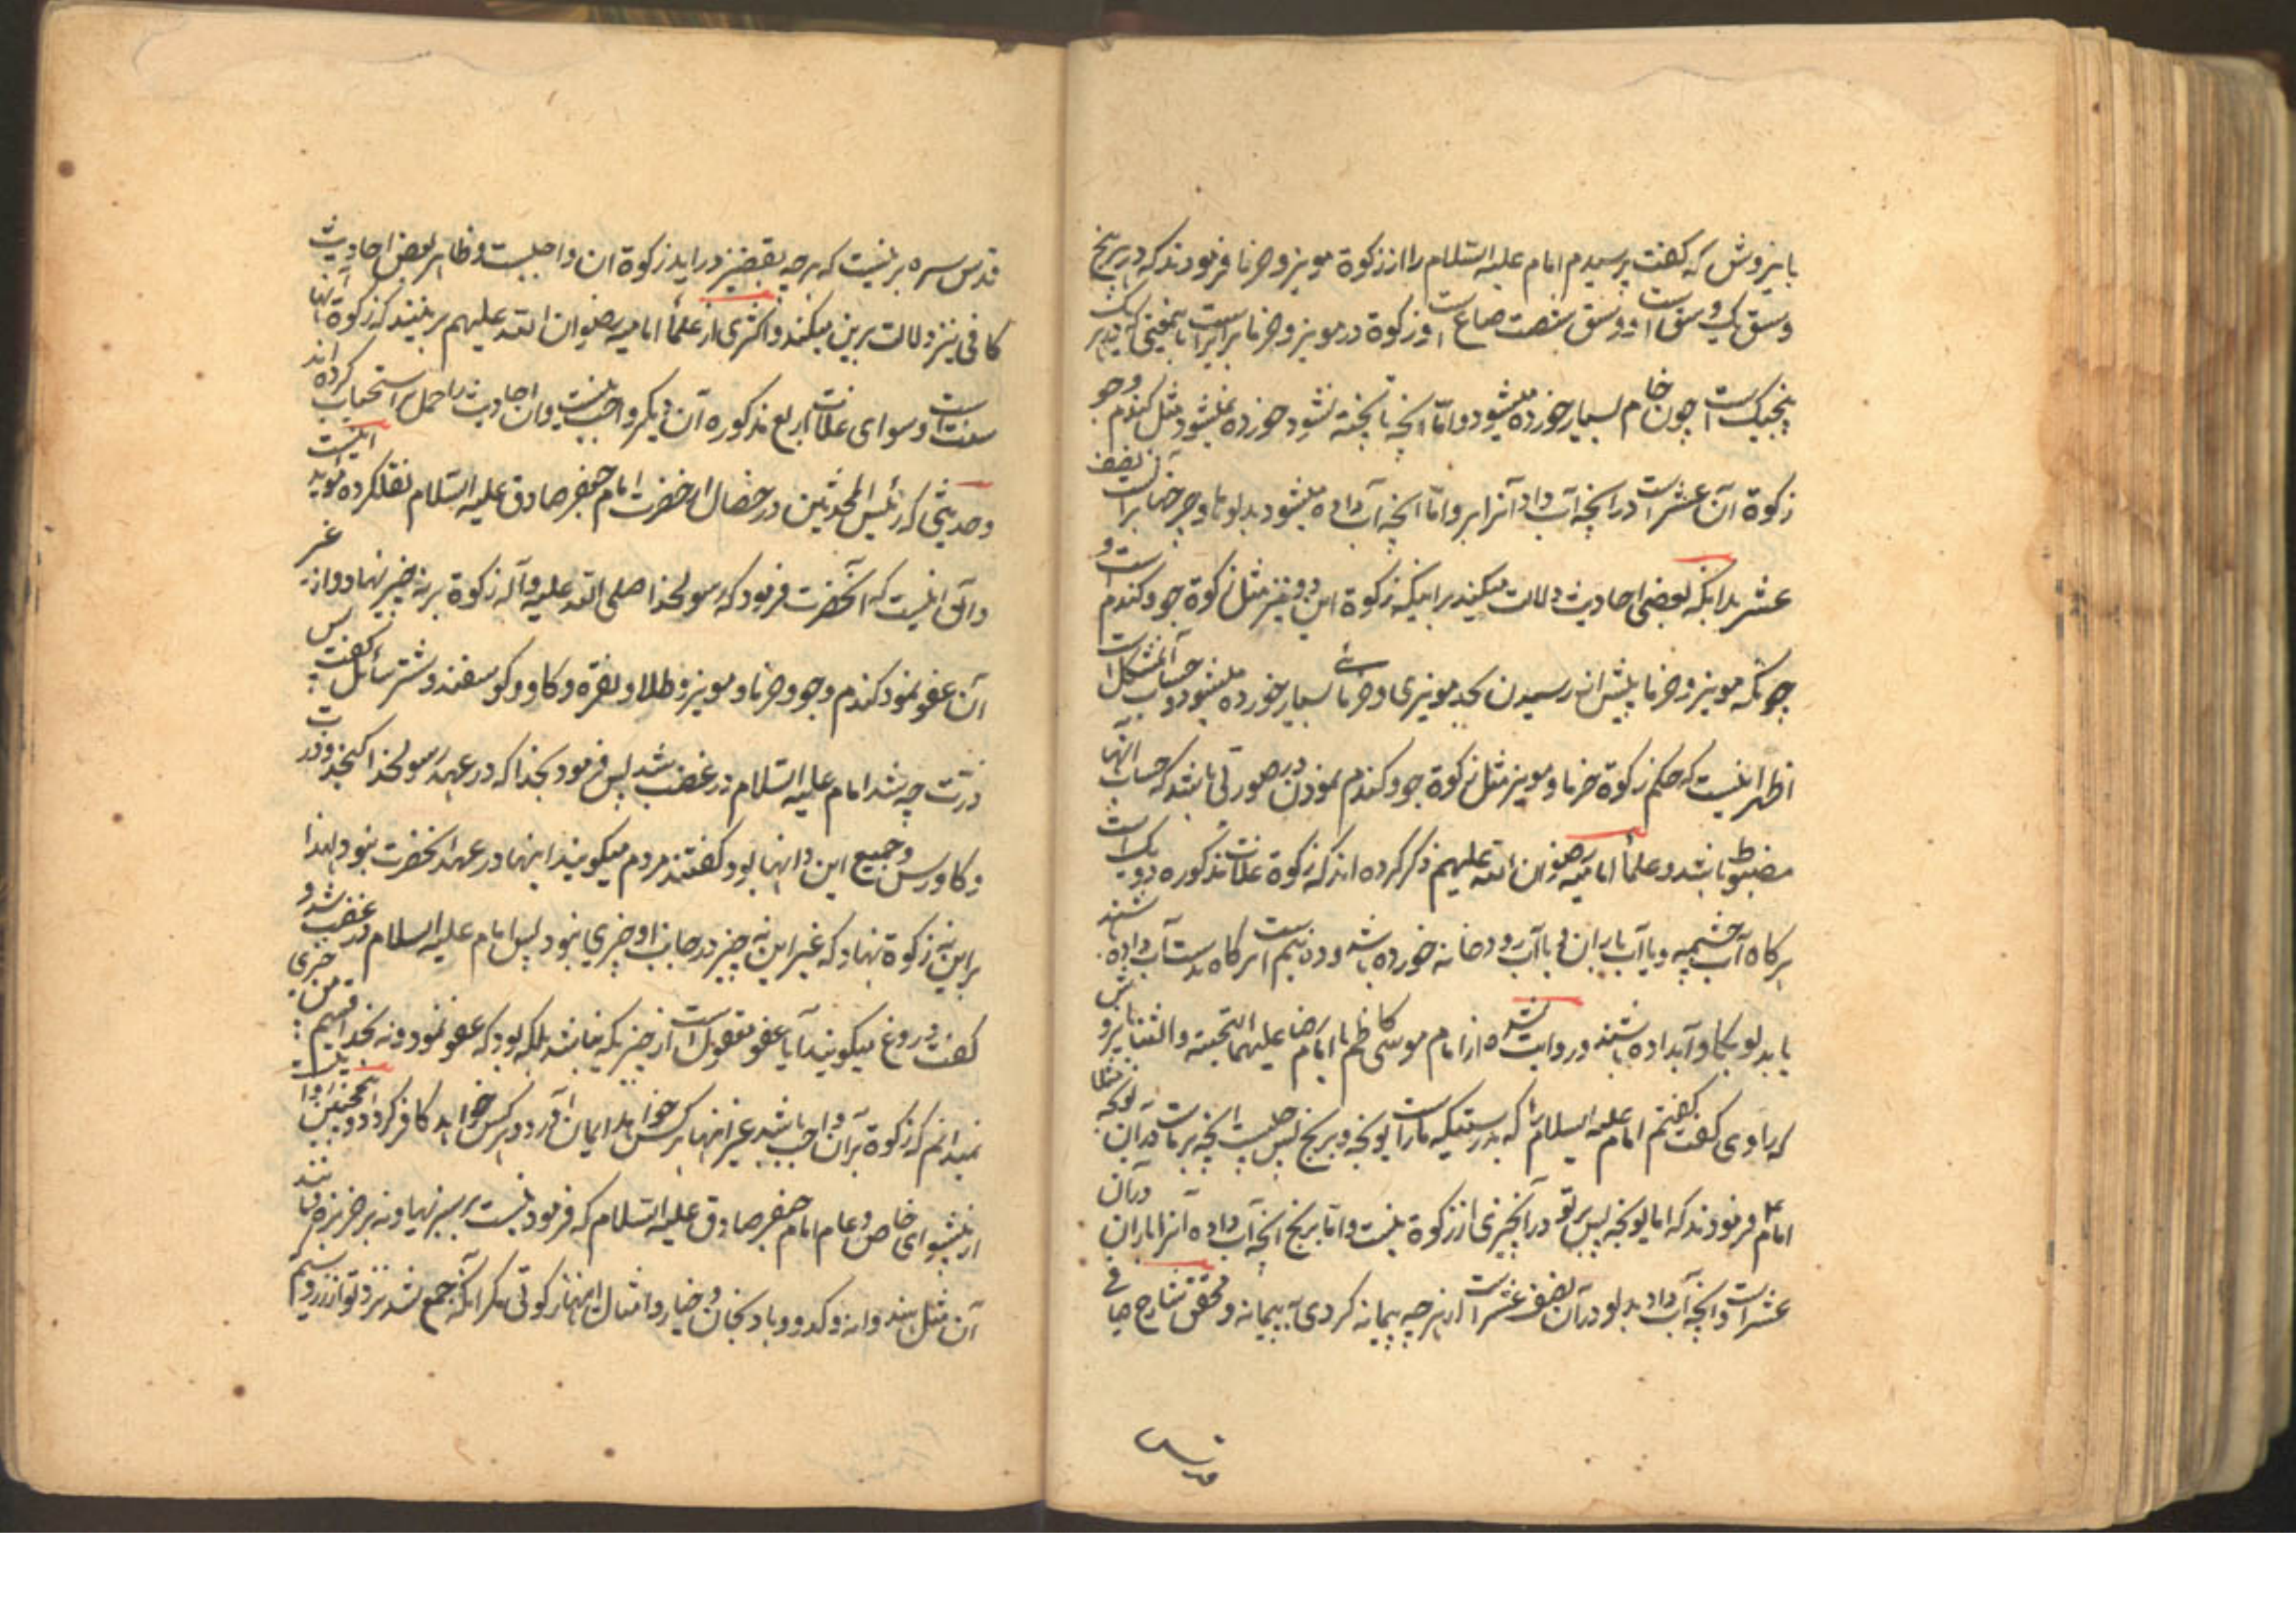 بابزروش که گفت پرسیدم امام علیه السّلام را از زکوة مویز و خرما فرمودند که در هر پنج
وسق یک وسق است و وسق شصت صاع است و زکوة در مویز و خرما برابر است
پنجیک است چون خام بسیار خورده میشود و امّا آنچه تا پخته نشود خورده نمیشود مثل گندم و جو
زکوة آن عشر است در آنچه آب داد آنرا ابر و امّا آنچه آب داده میشود بدلوها و چرخها پس بر آن نصف
عشر بدانکه بعضی احادیث دلالت میکند بر اینکه زکوة این دو نیز مثل زکوة جو و گندم است و
چونکه مویز و خرما پیش از رسیدن بحد مویزی و خرمائے بسیار خورده میشود و حساب آن مشکل است
اظهر اینست که حکم زکوة خرما و مویز مثل زکوة جو و گندم نمودن در صورتی باشد که حساب آنها
مضبوط باشد و علمأ امامیّه رضوان الله علیهم ذکر کرده اند که زکوة غلات مذکوره ده یک است
هرگاه آب چشمه و یا آب باران و یا آب رودخانه خورده باشد و ده نیم است هرگاه بدست آب داده باشند
یا بدلو یا بگاو آبداده باشند و روایت شده از امام موسی کاظم یا امام رضا علیهما التحیته والثنا
که راوی گفت گفتم امام علیه السلام را که بدرستیکه ما راست یونجه و برنج پس چیست آنچه بر ماست در آن
امام ع فرمودند که اما یونجه پس بر تو در آن چیزی از زکوة نیست و امّا برنج آنچه آب داده آنرا باران در آن
عشر است و آنچه آب داد بدلو در آن نصف عشر است از هر چه پیمانه کردی به پیمانه و محقق شارح صافی
قدس
قدس سره برینست که هر چه بقفیز در آید زکوة آن واجبست و ظاهر بعض احادیث
کافی نیز دلالت برین میکند و اکثری از علمأ امامیه رضوان الله علیهم برینند که زکوة آنها
سنت است و سوای غلات اربع مذکوره آن دیگر واجب نیست و آن احادیث را حمل بر استحباب کرده اند
و حدیثی که رئیس المحدثین در خصال از حضرت امام جعفر صادق علیه السّلام نقلکرده مؤید اینست
و آن اینست که آنحضرت فرمود که رسولخدا صلی الله علیه و آله زکوة بر نه چیز نهاد و از غیر
آن عفو نمود گندم و جو و خرما و مویز و طلا و نقره و گاو و گوسفند و شتر سائل گفت پس
ذرّت چه شد امام علیه السّلام در غضب شد پس فرمود بخدا که در عهد رسولخدا کنجد و ذرت
و گاورس و جمیع این دانها بود گفتند مردم میگویند اینها در عهد آنحضرت نبود لهذا
بر این نه زکوة نهاد که غیر این نه چیز در جانب او چیزی نبود پس امام علیه السلام در غضب شد و
گفت دروغ میگویند آیا عفو معقول است از چیزیکه نباشد بلکه بود که عفو نمود و نه بخدا قسم من چیزی
نمیدانم که زکوة بر آن واجب باشد غیر اینها هر کس خواهد ایمان آورد و هر کس خواهد کافر گردد و همچنین
از پیشوای خاص و عام امام جعفر صادق علیه السّلام که فرمود نیست بر سبزیها و نه بر خربزه و مانند
آن مثل هندوانه و کدو و بادنجان و خیار و امثال اینها زکوتی مگر آنکه جمع شد نزد تو از زر و سیم